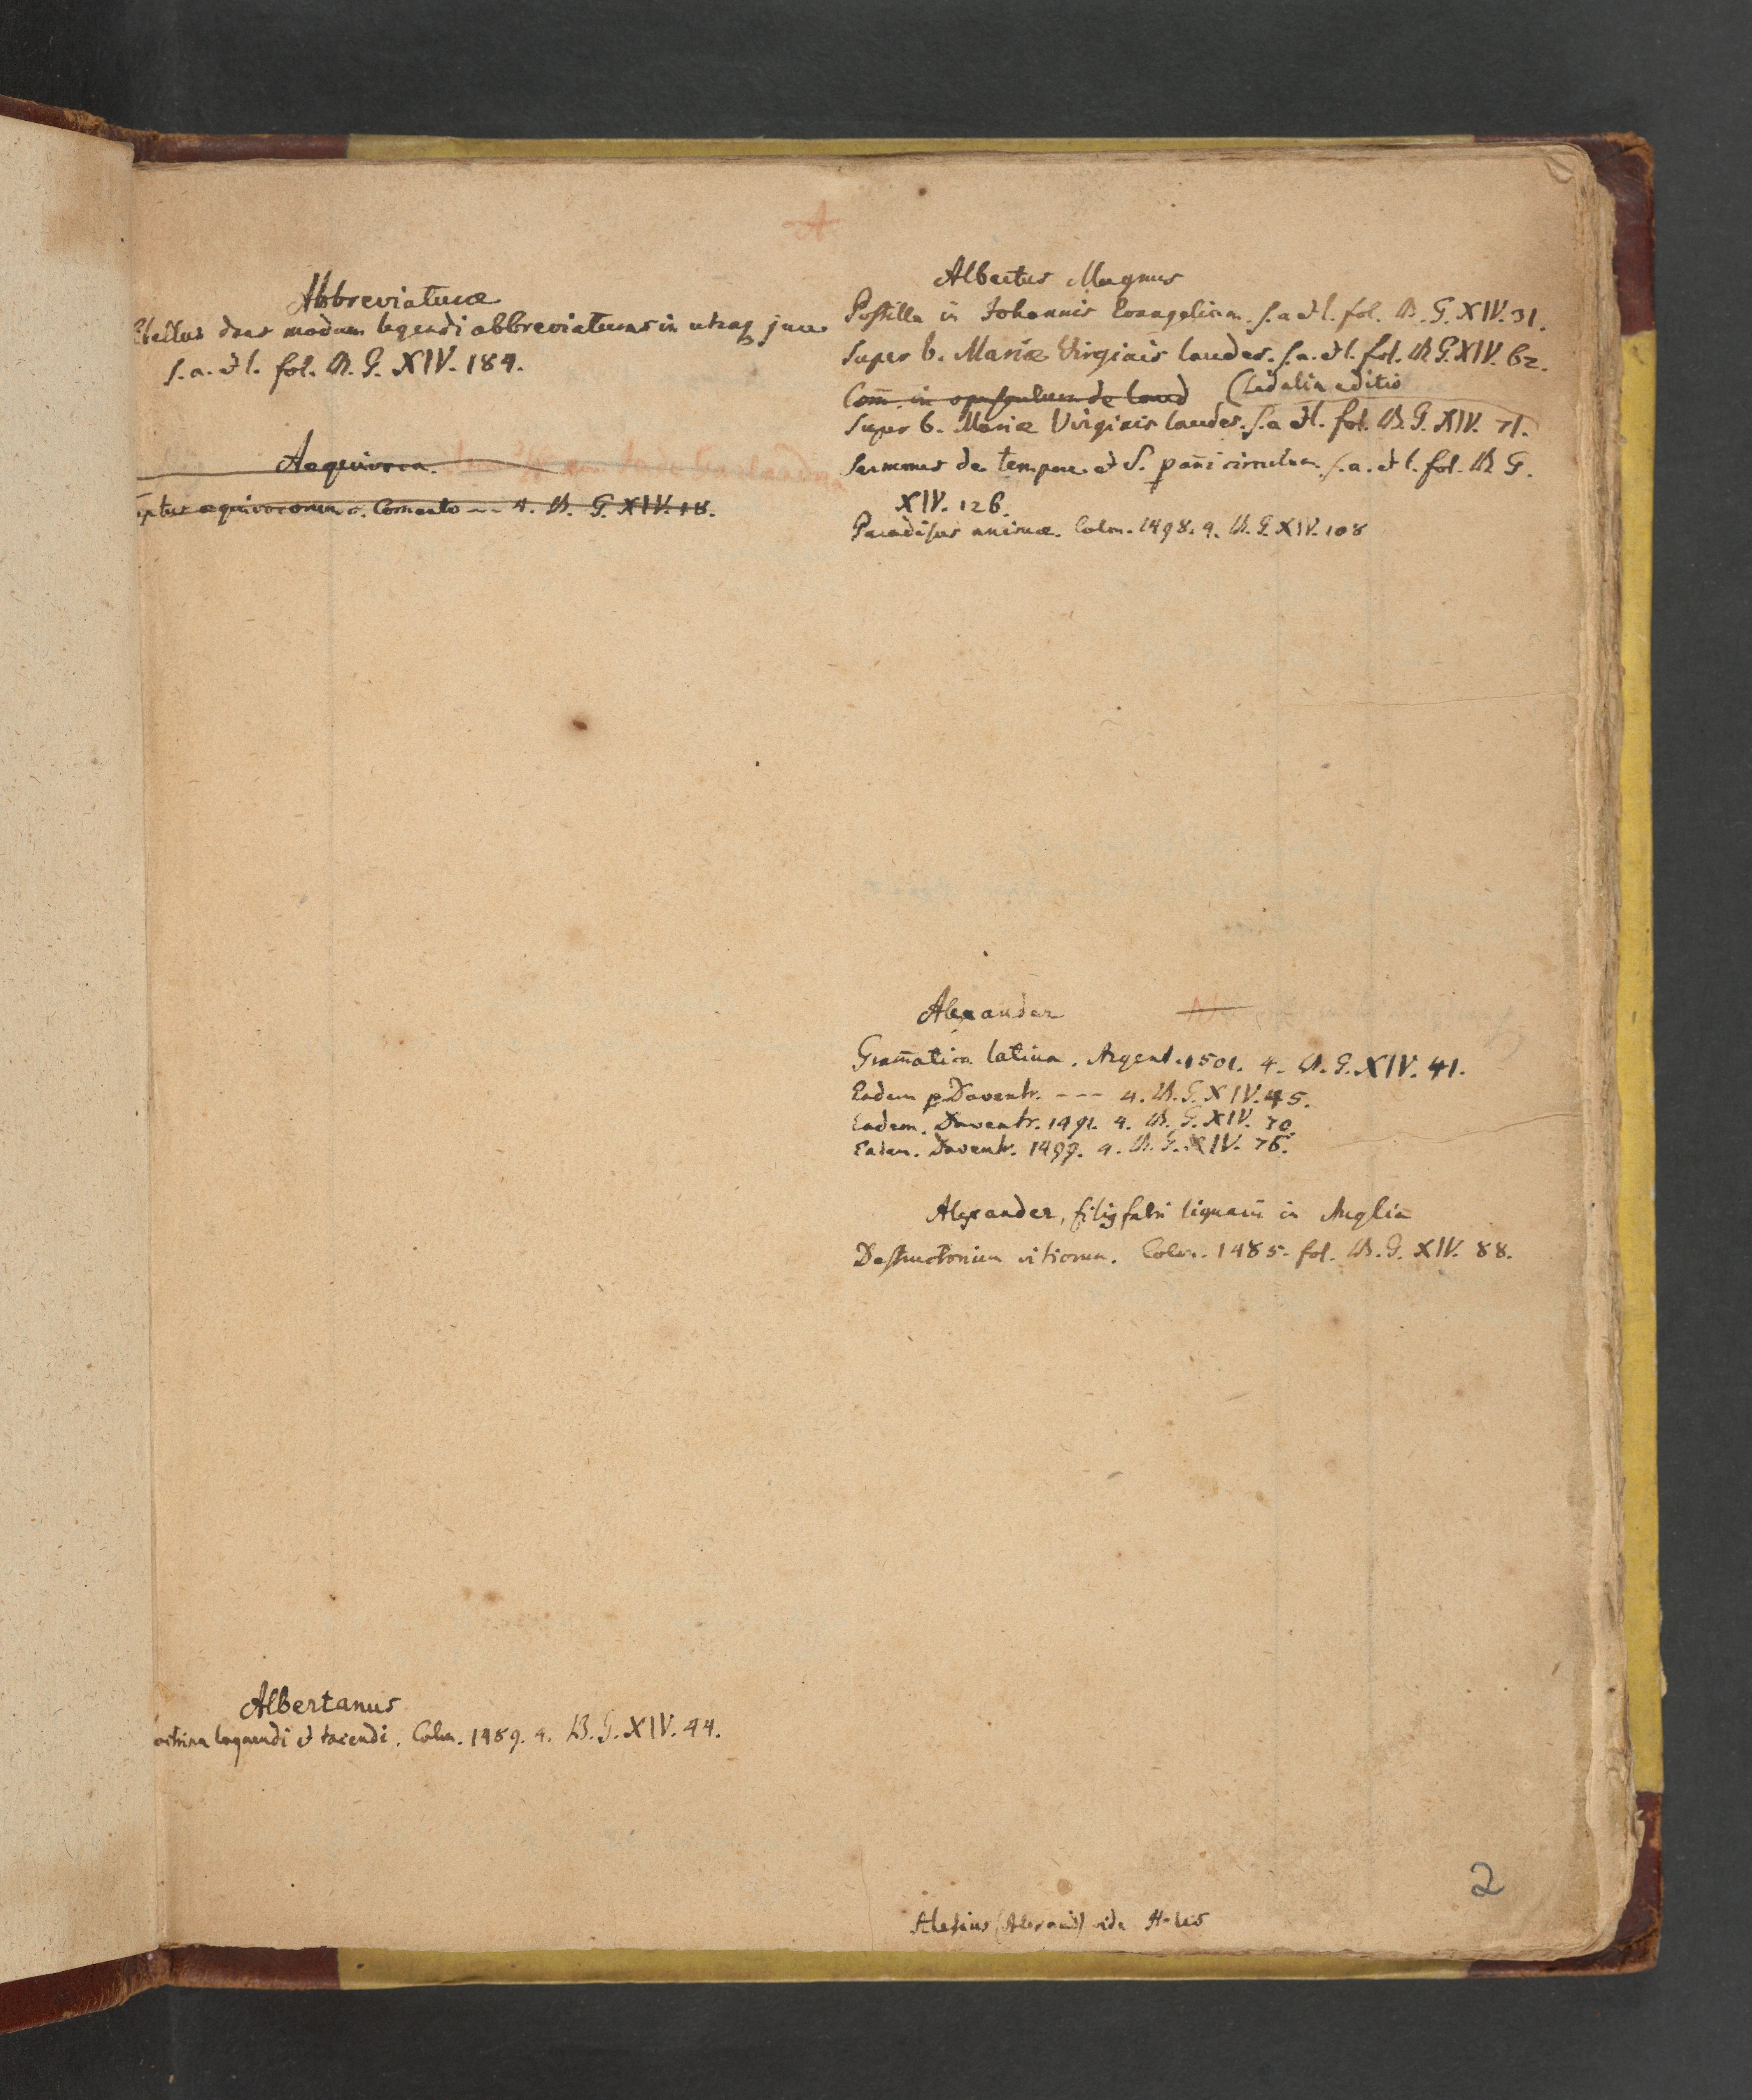 A
Abbreviaturæ
Libellus dans modum legendi abbreviaturas in utroq jure
s. a. et l. fol. B. G. XIV. 184.
Aequivoca.
aequivocorum c. Comento --- 4. B. G. XIV. 18.
Albertanus
octrina loquendi et tacendi. Colon. 1489. 4. B. G. XIV. 44.
Albertus Magnus
Postilla in Johannis Evangelium. s. a et l. fol. B. G. XIV. 31.
Super b. Mariæ Virginis laudes. s. a. et l. fol. B. G. XIV. 62.
Com̄. in opusculum de laud (ead alia editio
Super b. Mariæ Virginis laudes. s. a et l. fol. B. G. XIV. 71.
Sermones de tempore et S. p añi circulum s. a. et l. fol. B. G.
XIV. 126.
Paradisus animæ. Colon. 1498. 4. B. G. XIV. 108
Alexander
Gram̄atica latina. Argent. 1501. 4. B. G. XIV. 41.
Eadem Daventr. --- 4. B. G. XIV. 45.
Eadem. Daventr. 1491. 4. B. G. XIV. 70.
Eadem. Daventr. 1499. 4. B. G. XIV. 76.
Alexander, filig fabri lignarii in Anglia
Destructorium vitiorum. Colon. 1485. fol. B. G. XIV. 88.
Alesius (Alexand) vide Hales
2